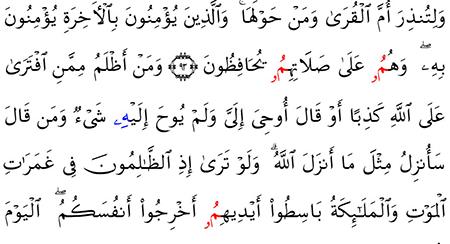 وَلِتُنذِرَ أُمَّ ٱلۡقُرَىٰ وَمَنۡ حَوۡلَهَاۚ وَٱلَّذِينَ يُؤۡمِنُونَ بِٱلۡأٓخِرَةِ يُؤۡمِنُونَ
بِهِۦۖ وَهُمُۥ عَلَىٰ صَلَاتِهِمُۥ يُحَافِظُونَ ۝٩٣ وَمَنۡ أَظۡلَمُ مِمَّنِ ٱفۡتَرَىٰ
عَلَى ٱللَّهِ كَذِبًا أَوۡ قَالَ أُوحِيَ إِلَيَّ وَلَمۡ يُوحَ إِلَيۡهِۦ شَيۡءٞ وَمَن قَالَ
سَأُنزِلُ مِثۡلَ مَا أَنزَلَ ٱللَّهُۗ وَلَوۡ تَرَىٰ إِذِ ٱلظَّـٰلِمُونَ فِي غَمَرَٰتِ
ٱلۡمَوۡتِ وَٱلۡمَلَـٰٓئِكَةُ بَاسِطُواْ أَيۡدِيهِمُۥ أَخۡرِجُواْ أَنفُسَكُمُۥۖ ٱلۡيَوۡمَ